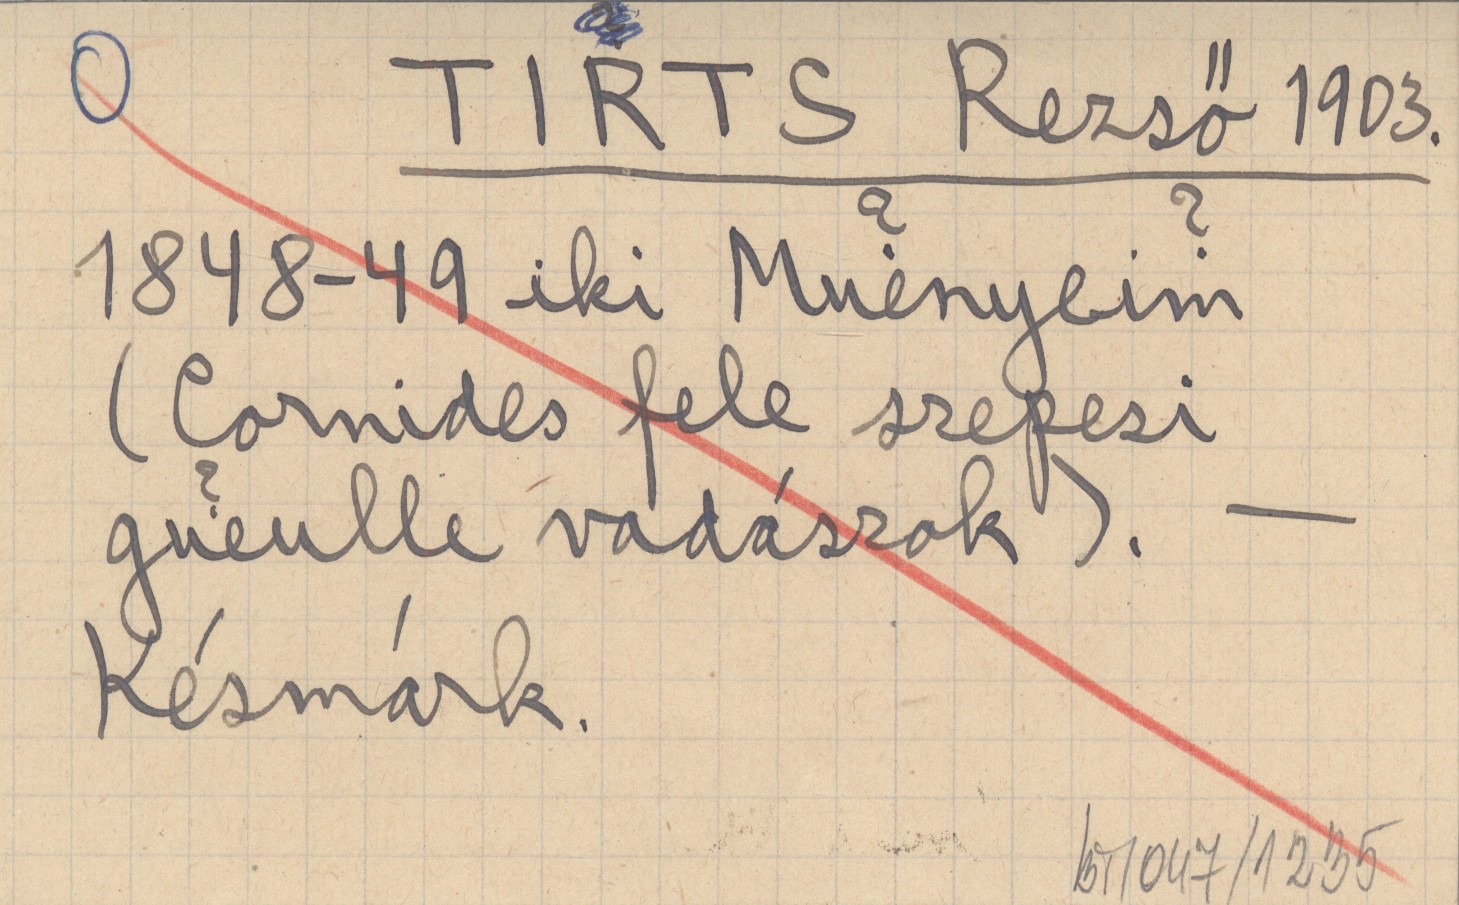 TIRTS Rezső 1903.
1848-49 iki Muényeim
? ?
(Cornides fele szepesi
?
gueulle vadászok). —
Késmárk.
/047/1235